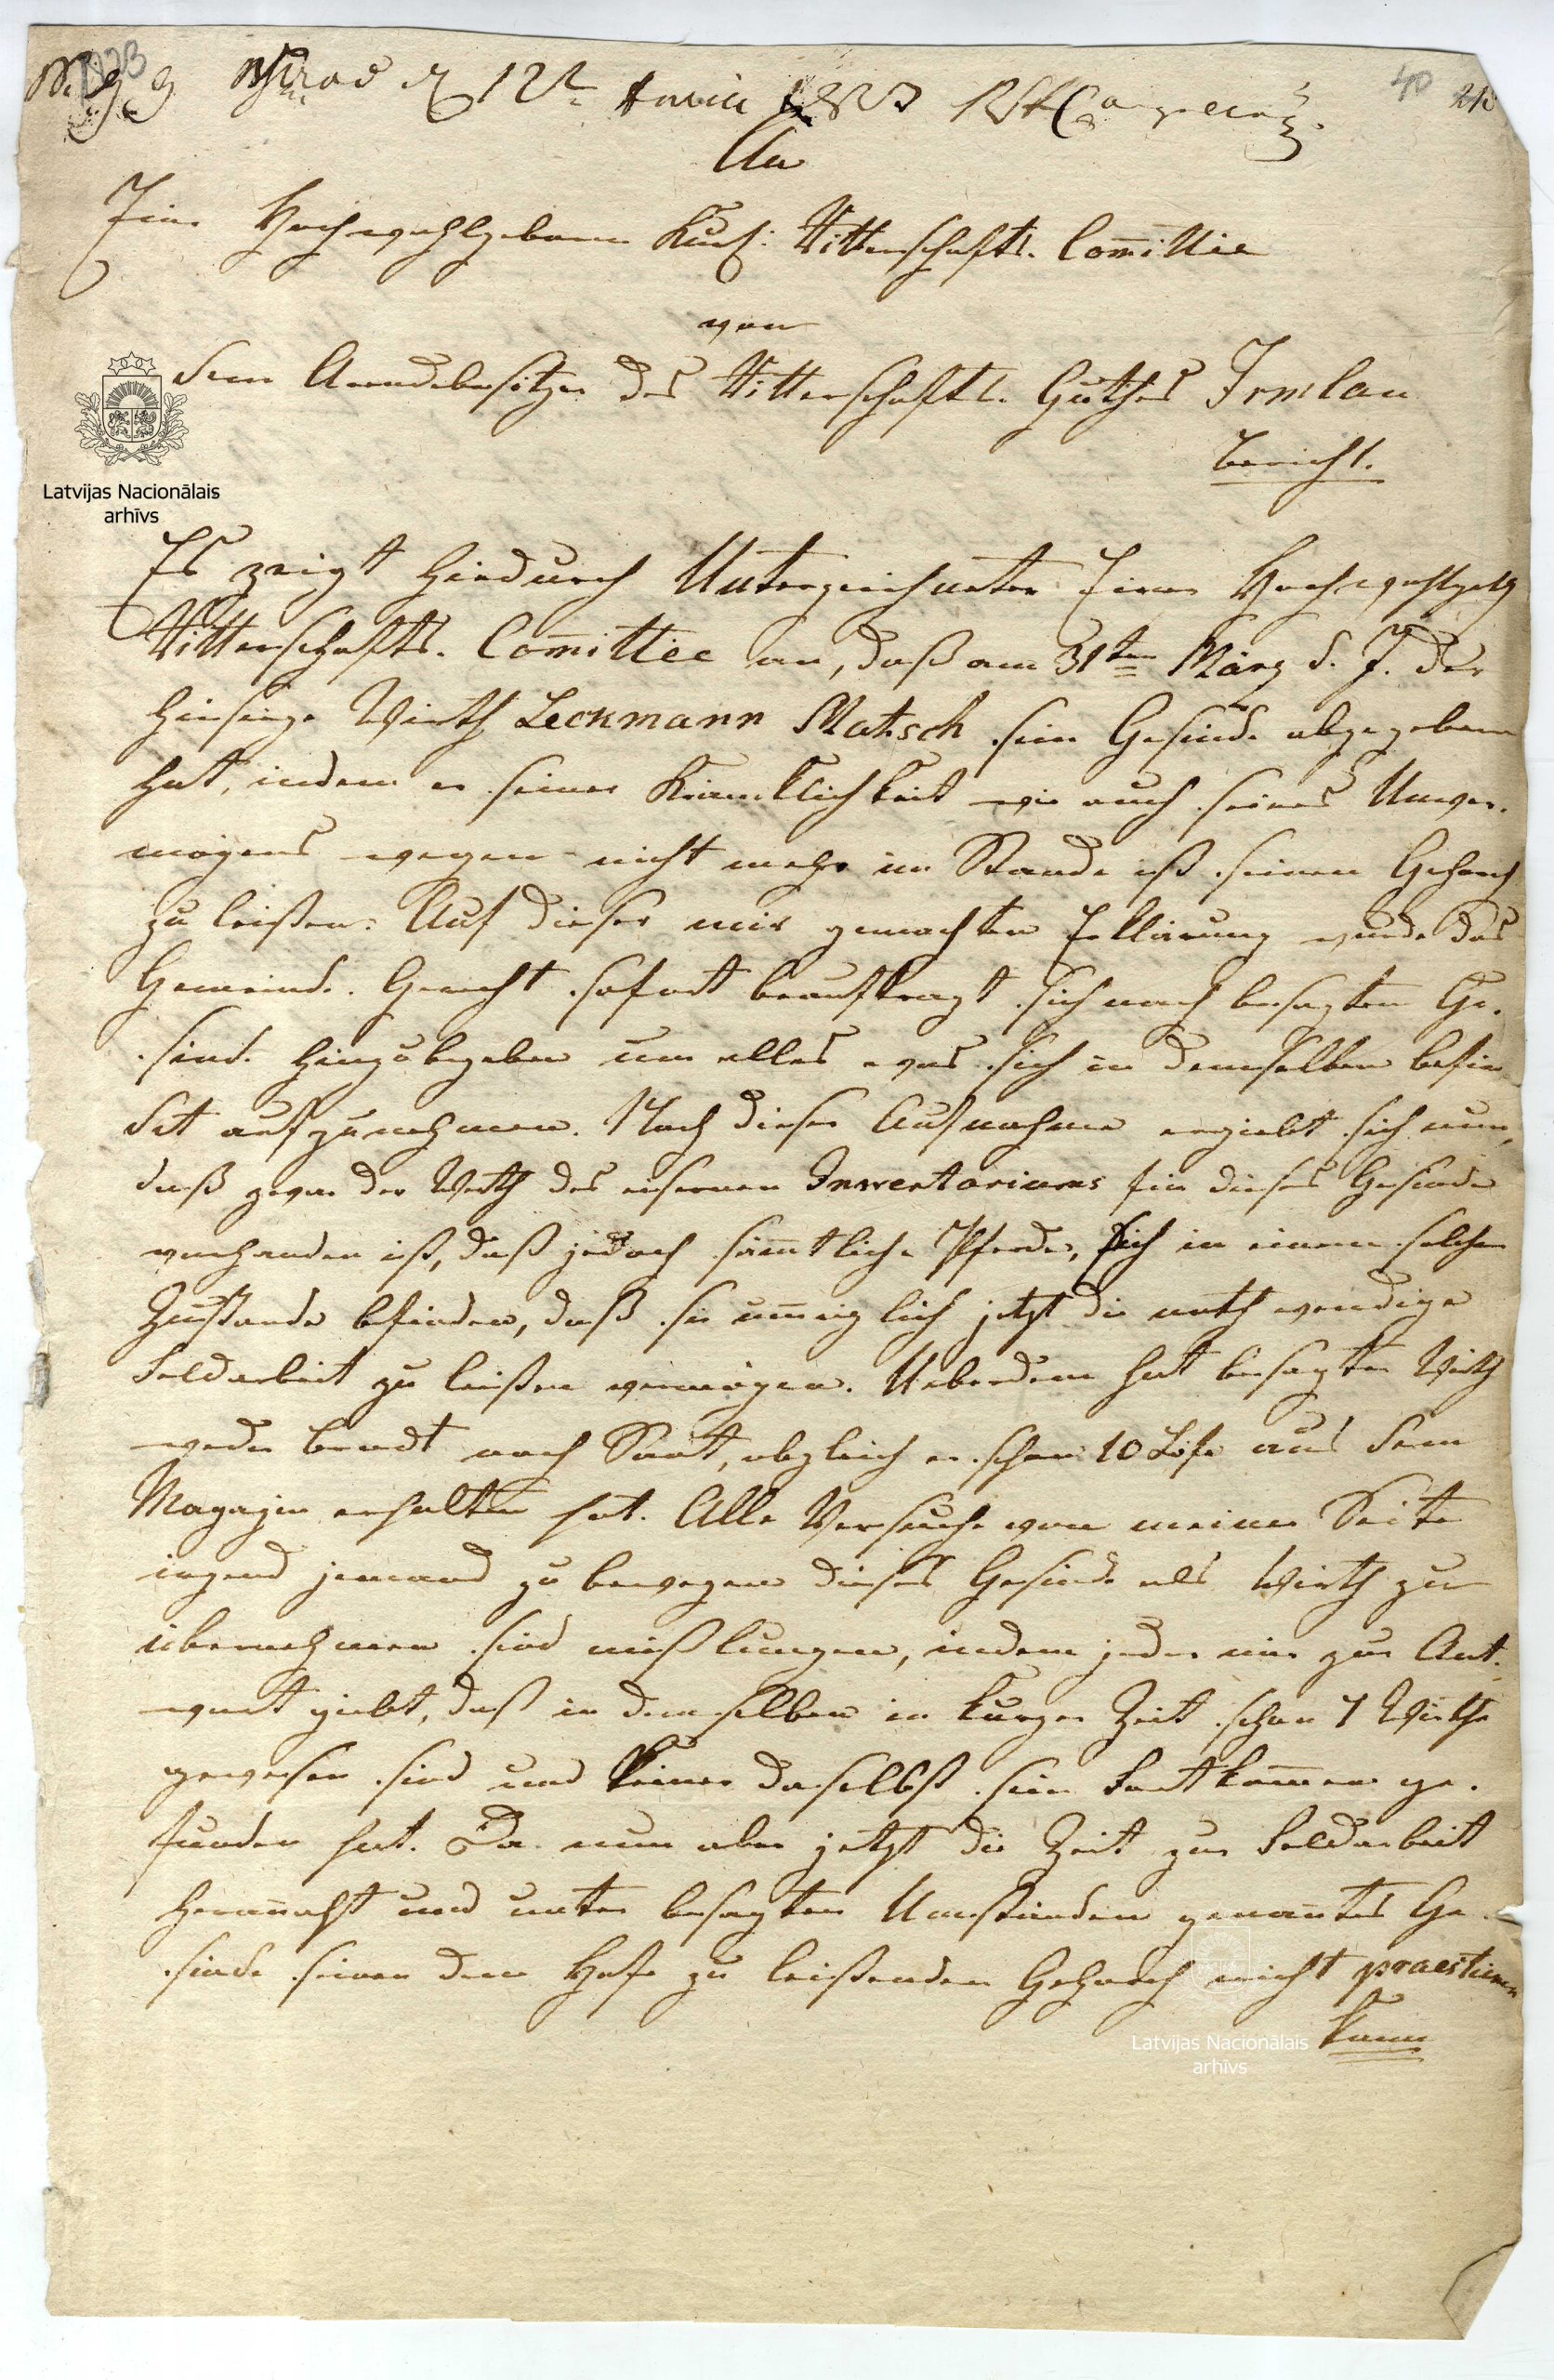 40
An
Eine Hochwohlgeborne Kurl: Ritterschafts. Com̄ittée
von
dem Arrendebesitzer des Ritterschafts. Guthes Irmlau
Bericht.
Latvijas Nacionālais
arhīvs
Es zeigt hiedurch Unterzeichneter Einer Hochwohlgeb
Ritterschafts. Com̄ittée an, daß am 31ten März d. J. der
hiesige Wirth Leckmann Matsch sein Gesinde abgegeben
hat, indem er seiner Kränklichkeit wie auch seines Unver-
mögens wegen nicht mehr im Stande ist seinen Gehorch
zu leisten. Auf dieser mir gemachten Erklärung wurde das
Gemeinde. Gericht sofort beauftragt sich nach besagten Ge-
sinde hinzubegeben um alles was sich in demselben befin
det aufzunehmen. Nach dieser Aufnahme ergiebt sich nun,
daß zwar der Werth des eisernen Inventariums für dieses Gesinde
vorhanden ist, daß jedoch säm̄tliche Pferde, sich in einem solchen
Zustande befinden, daß sie unmöglich jetzt die nothwendige
Feldarbeit zu leisten vermögen. Ueberdem hat besagter Wirth
weder Brodt noch Saat, obgleich er schon 10 Löfe aus dem
Magazin erhalten hat. Alle Versuche von meiner Seite
irgend jemand zu bewegen dieses Gesinde als Wirth zu
übernehmen sind mißlungen, indem jeder mir zur Ant-
wort giebt, daß in demselben in kurzer Zeit schon 7 Wirthe
gewesen sind und keiner daselbst sein Fortkom̄en ge-
funden hat. Da nun aber jetzt die Zeit zur Feldarbeit
heran̄aht und unter besagten Umständen genan̄tes Ge-
sinde seinen dem Hofe zu leistenden Gehorch nicht praestiren
kann
Latvijas Nacionālais
arhīvs